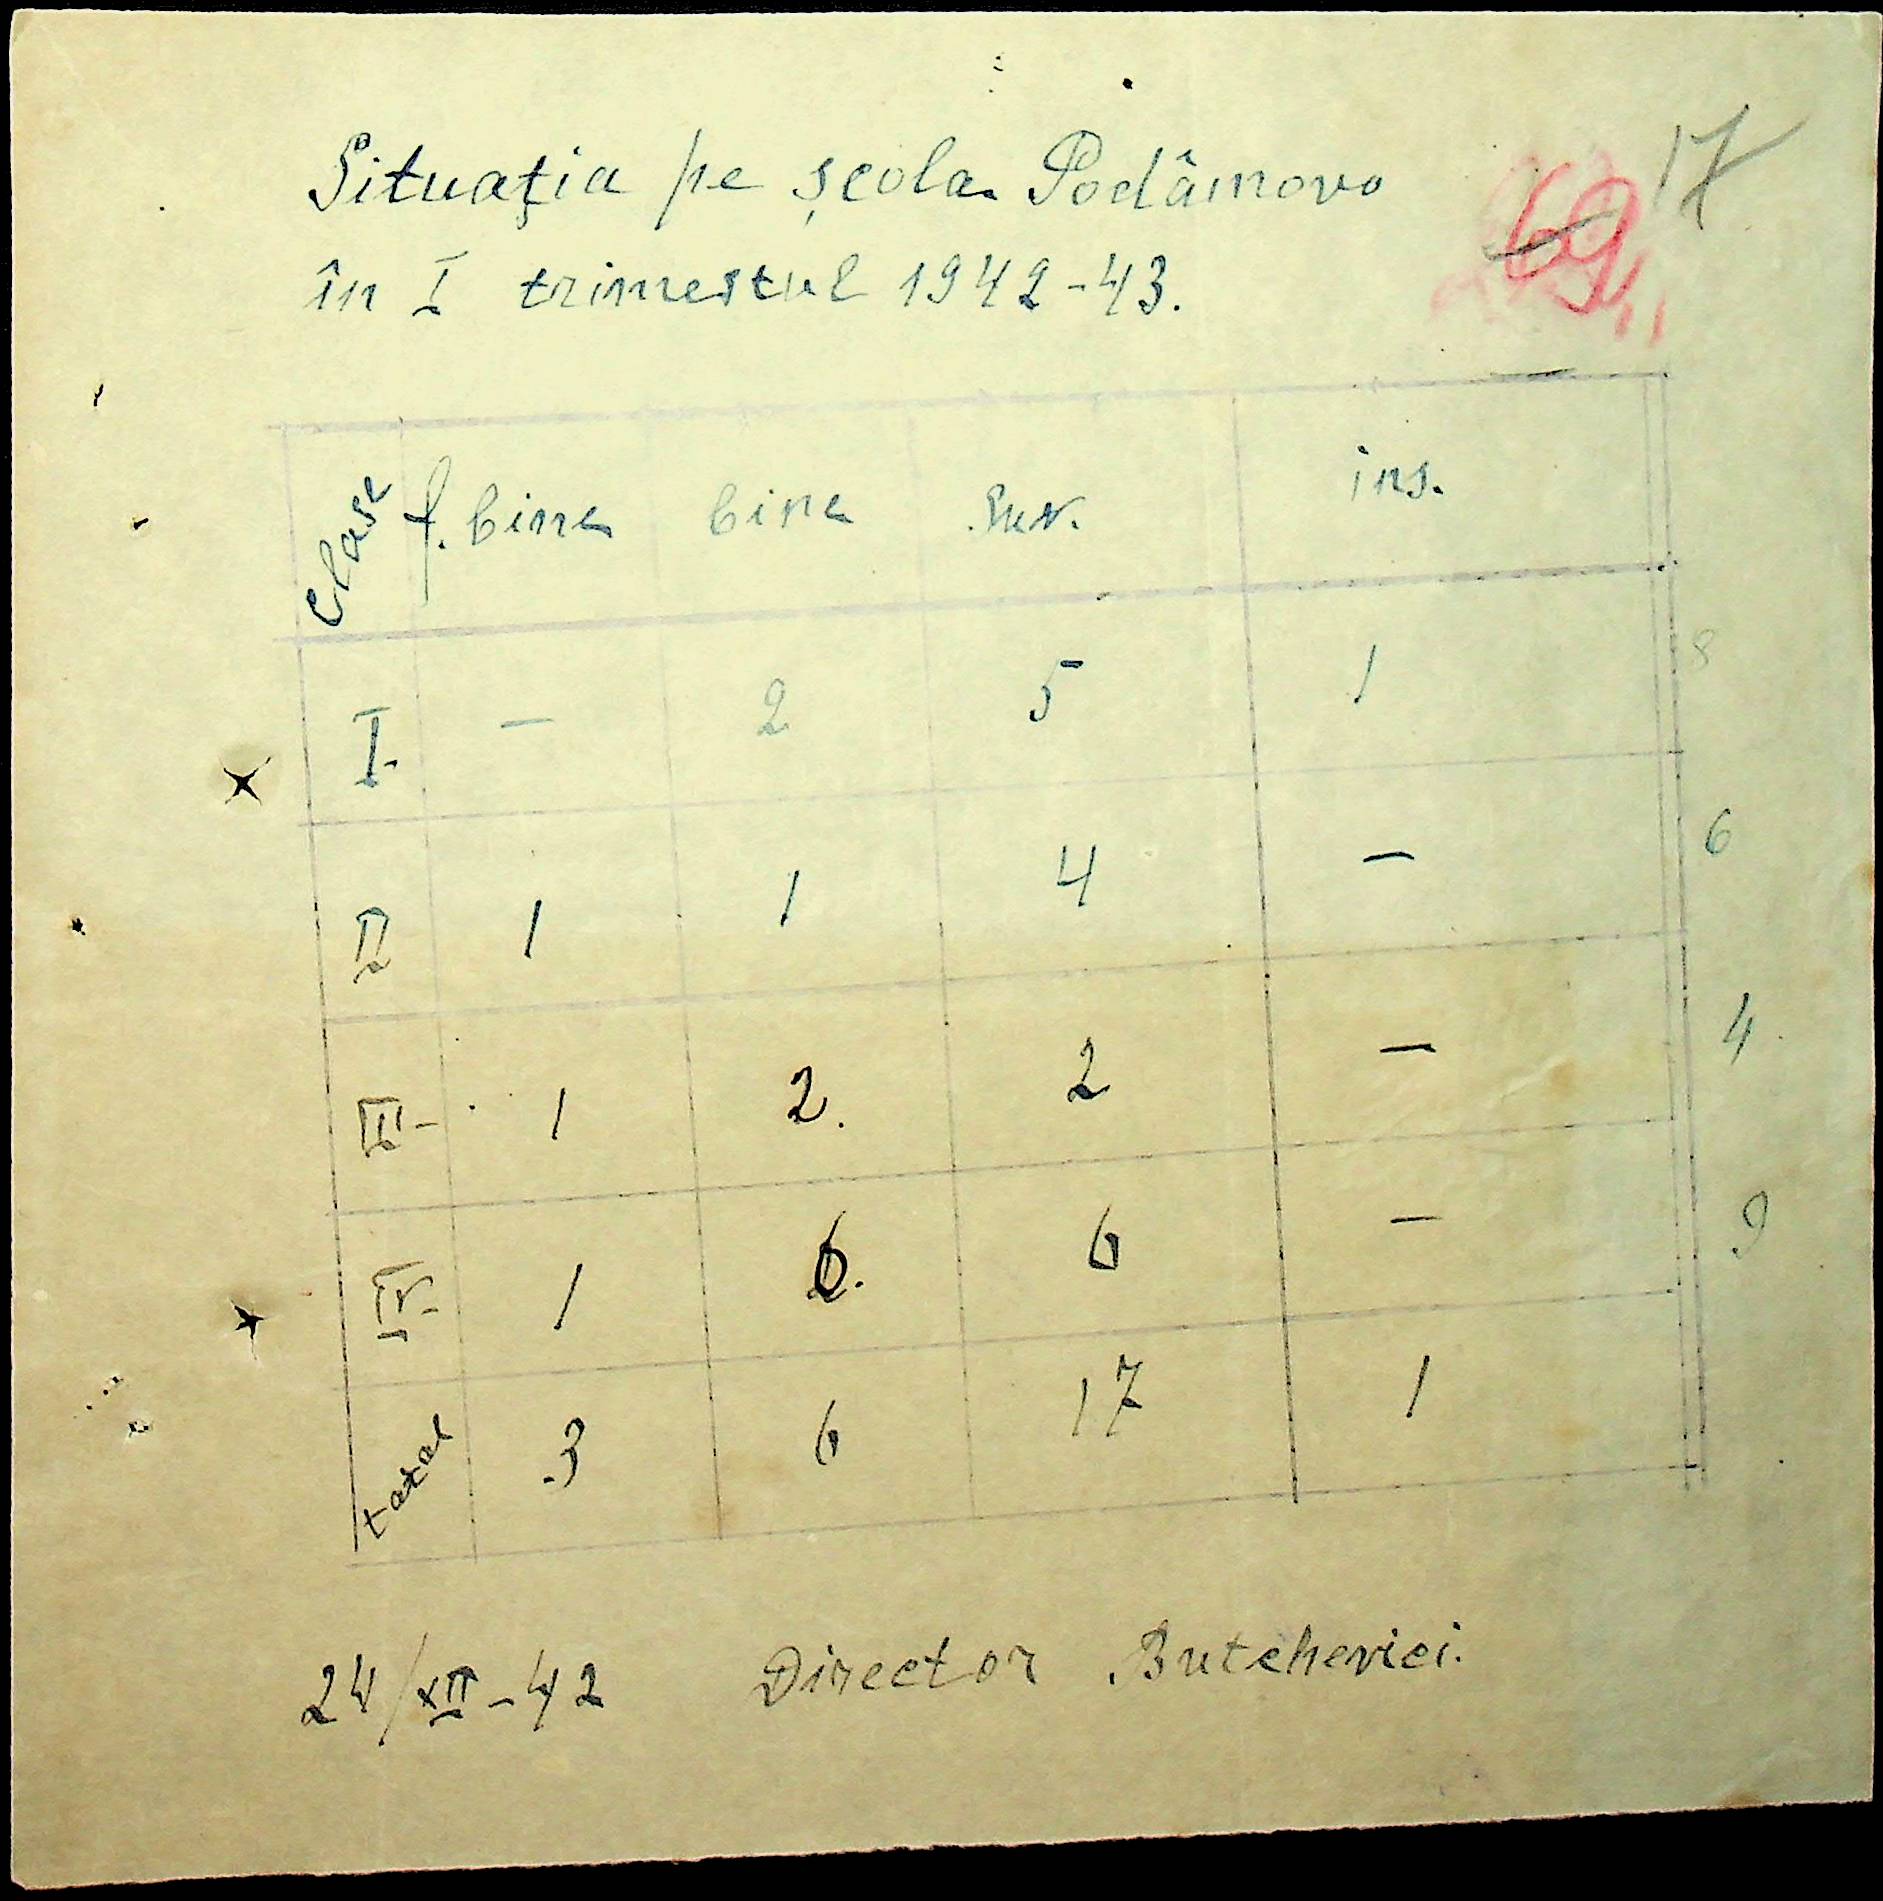 17
69
Situaţia pe școla Podâmovo
în I trimestrul 1942-43.
Clase f. bine bine Suv. ins.
I. — 2 5 1 8
II 1 1 4 — 6
III- 1 2. 2 — 4
IV. 1 — 6
total 3 6 17 1
24/XII-42 Director Butchevici.